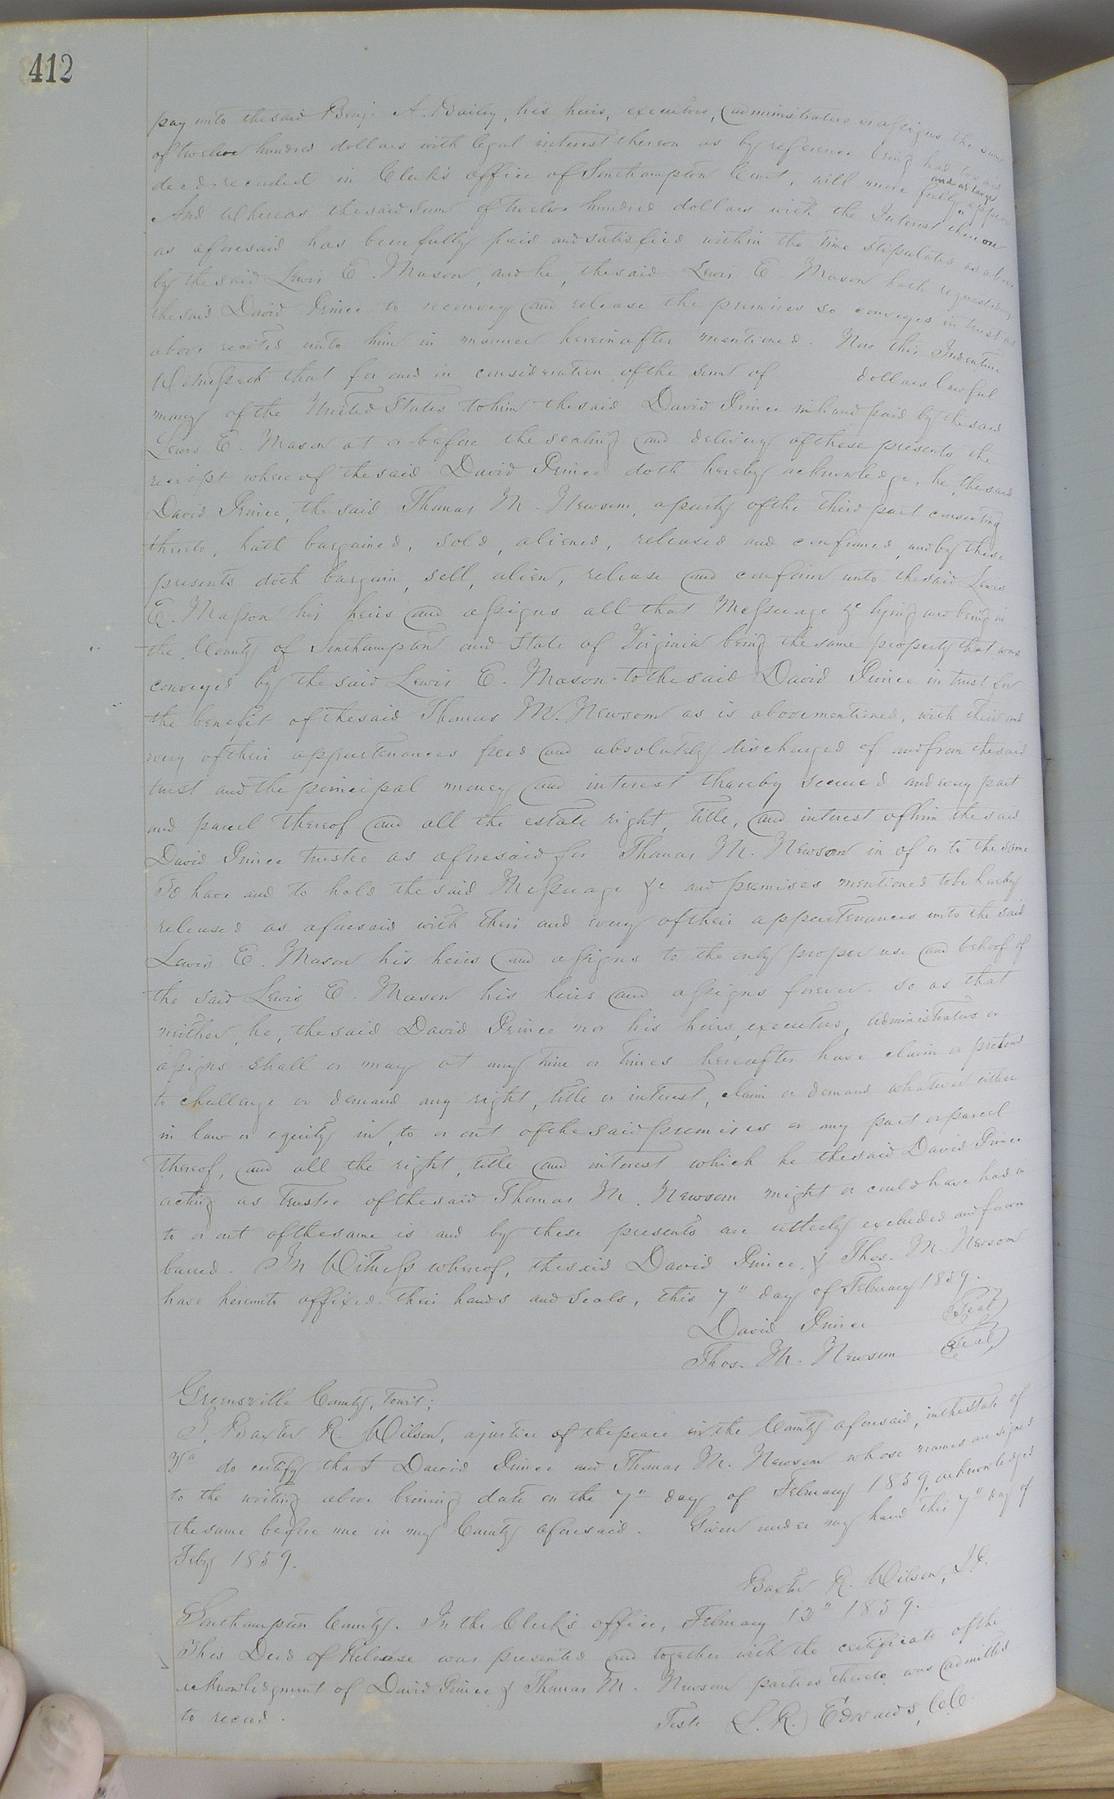 412
pay unto the said Benj. A. Bailey, his heirs, executors, administrators or assigns the sum
of twelve hundred dollars with legal interest thereon as by reference being had to said
deed recorded in Clerk's office of Southampton Court, will more fully and at large appear
And Whereas the said sum of twelve hundred dollars with the Interest thereon
as aforesaid has been fully paid and satisfied within the time stipulated as above
by the said Lewis E. Mason, and he, the said Lewis E. Mason hath requested
the said David Prince to reconvey and release the premises so conveyed in trust as
above recited unto him in manner hereinafter mentioned. Now this Indenture
Witnesseth that for and in consideration of the sum of dollars lawful
money of the United States to him the said David Prince in hand paid by the said
Lewis E. Mason at or before the sealing and delivery of these presents the
receipt whereof the said David Prince doth hereby acknowledge, he, the said
David Prince, the said Thomas M. Newsom, a party of the third part consenting
thereto, hath bargained, sold, aliened, released and confirmed, and by these
presents doth bargain, sell, alien, release and confirm unto the said Lewis
E. Mason his heirs and assigns all that Messuage &c lying and being in
the County of Southampton and State of Virginia being the same property that was
conveyed by the said Lewis E. Mason to the said David Prince in trust for
the benefit of the said Thomas M. Newsom as is abovementioned, with their and
every of their appurtenances freed and absolutely discharged of and from the said
trust and the principal money and interest thereby secured and every part
and parcel thereof and all the estate right, title, and interest of him the said
David Prince trustee as aforesaid for Thomas M. Newsom in of or to the same
To have and to hold the said Messuage &c and premises mentioned to be hereby
released as aforesaid with their and every of their appurtenances unto the said
Lewis E. Mason his heirs and assigns to the only proper use and behoof of
the said Lewis E. Mason his heirs and assigns forever. so as that
neither, he, the said David Prince nor his heirs, executors, administrators or
assigns shall or may at any time or times hereafter have claim or pretend
to challenge or demand any right, title or interest, claim or demand whatsoever either
in law or equity in, to or out of the said premises or any part or parcel
thereof, and all the right, title and interest which he the said David Prince
acting as trustee of the said Thomas M. Newsom might or could have had in
to or out of the same is and by these presents are utterly excluded and forever
barred. In Witness whereof, the said David Prince & Thos. M. Newsom
have hereunto affixed their hands and seals, this 7" day of February 1859.
David Prince (Seal)
Thos. M. Newsom (Seal)
Greensville County, towit:
I, Baxter R. Wilson, a justice of the peace in the County aforesaid, in the state of
Va do certify that David Prince and Thomas M. Newsom whose names are signed
to the writing above bearing date on the 7" day of February 1859, acknowledged
the same before me in my County aforesaid. Given under my hand this 7" day of
Feby 1859.
Baxter R. Wilson, J.P.
Southampton County. In the Clerk's office, February 13" 1859.
This Deed of Release was presented and together with the certificate of the
acknowledgment of David Prince & Thomas M. Newsom parties thereto was admitted
to record.
Teste L. R. Edwards, C.C.